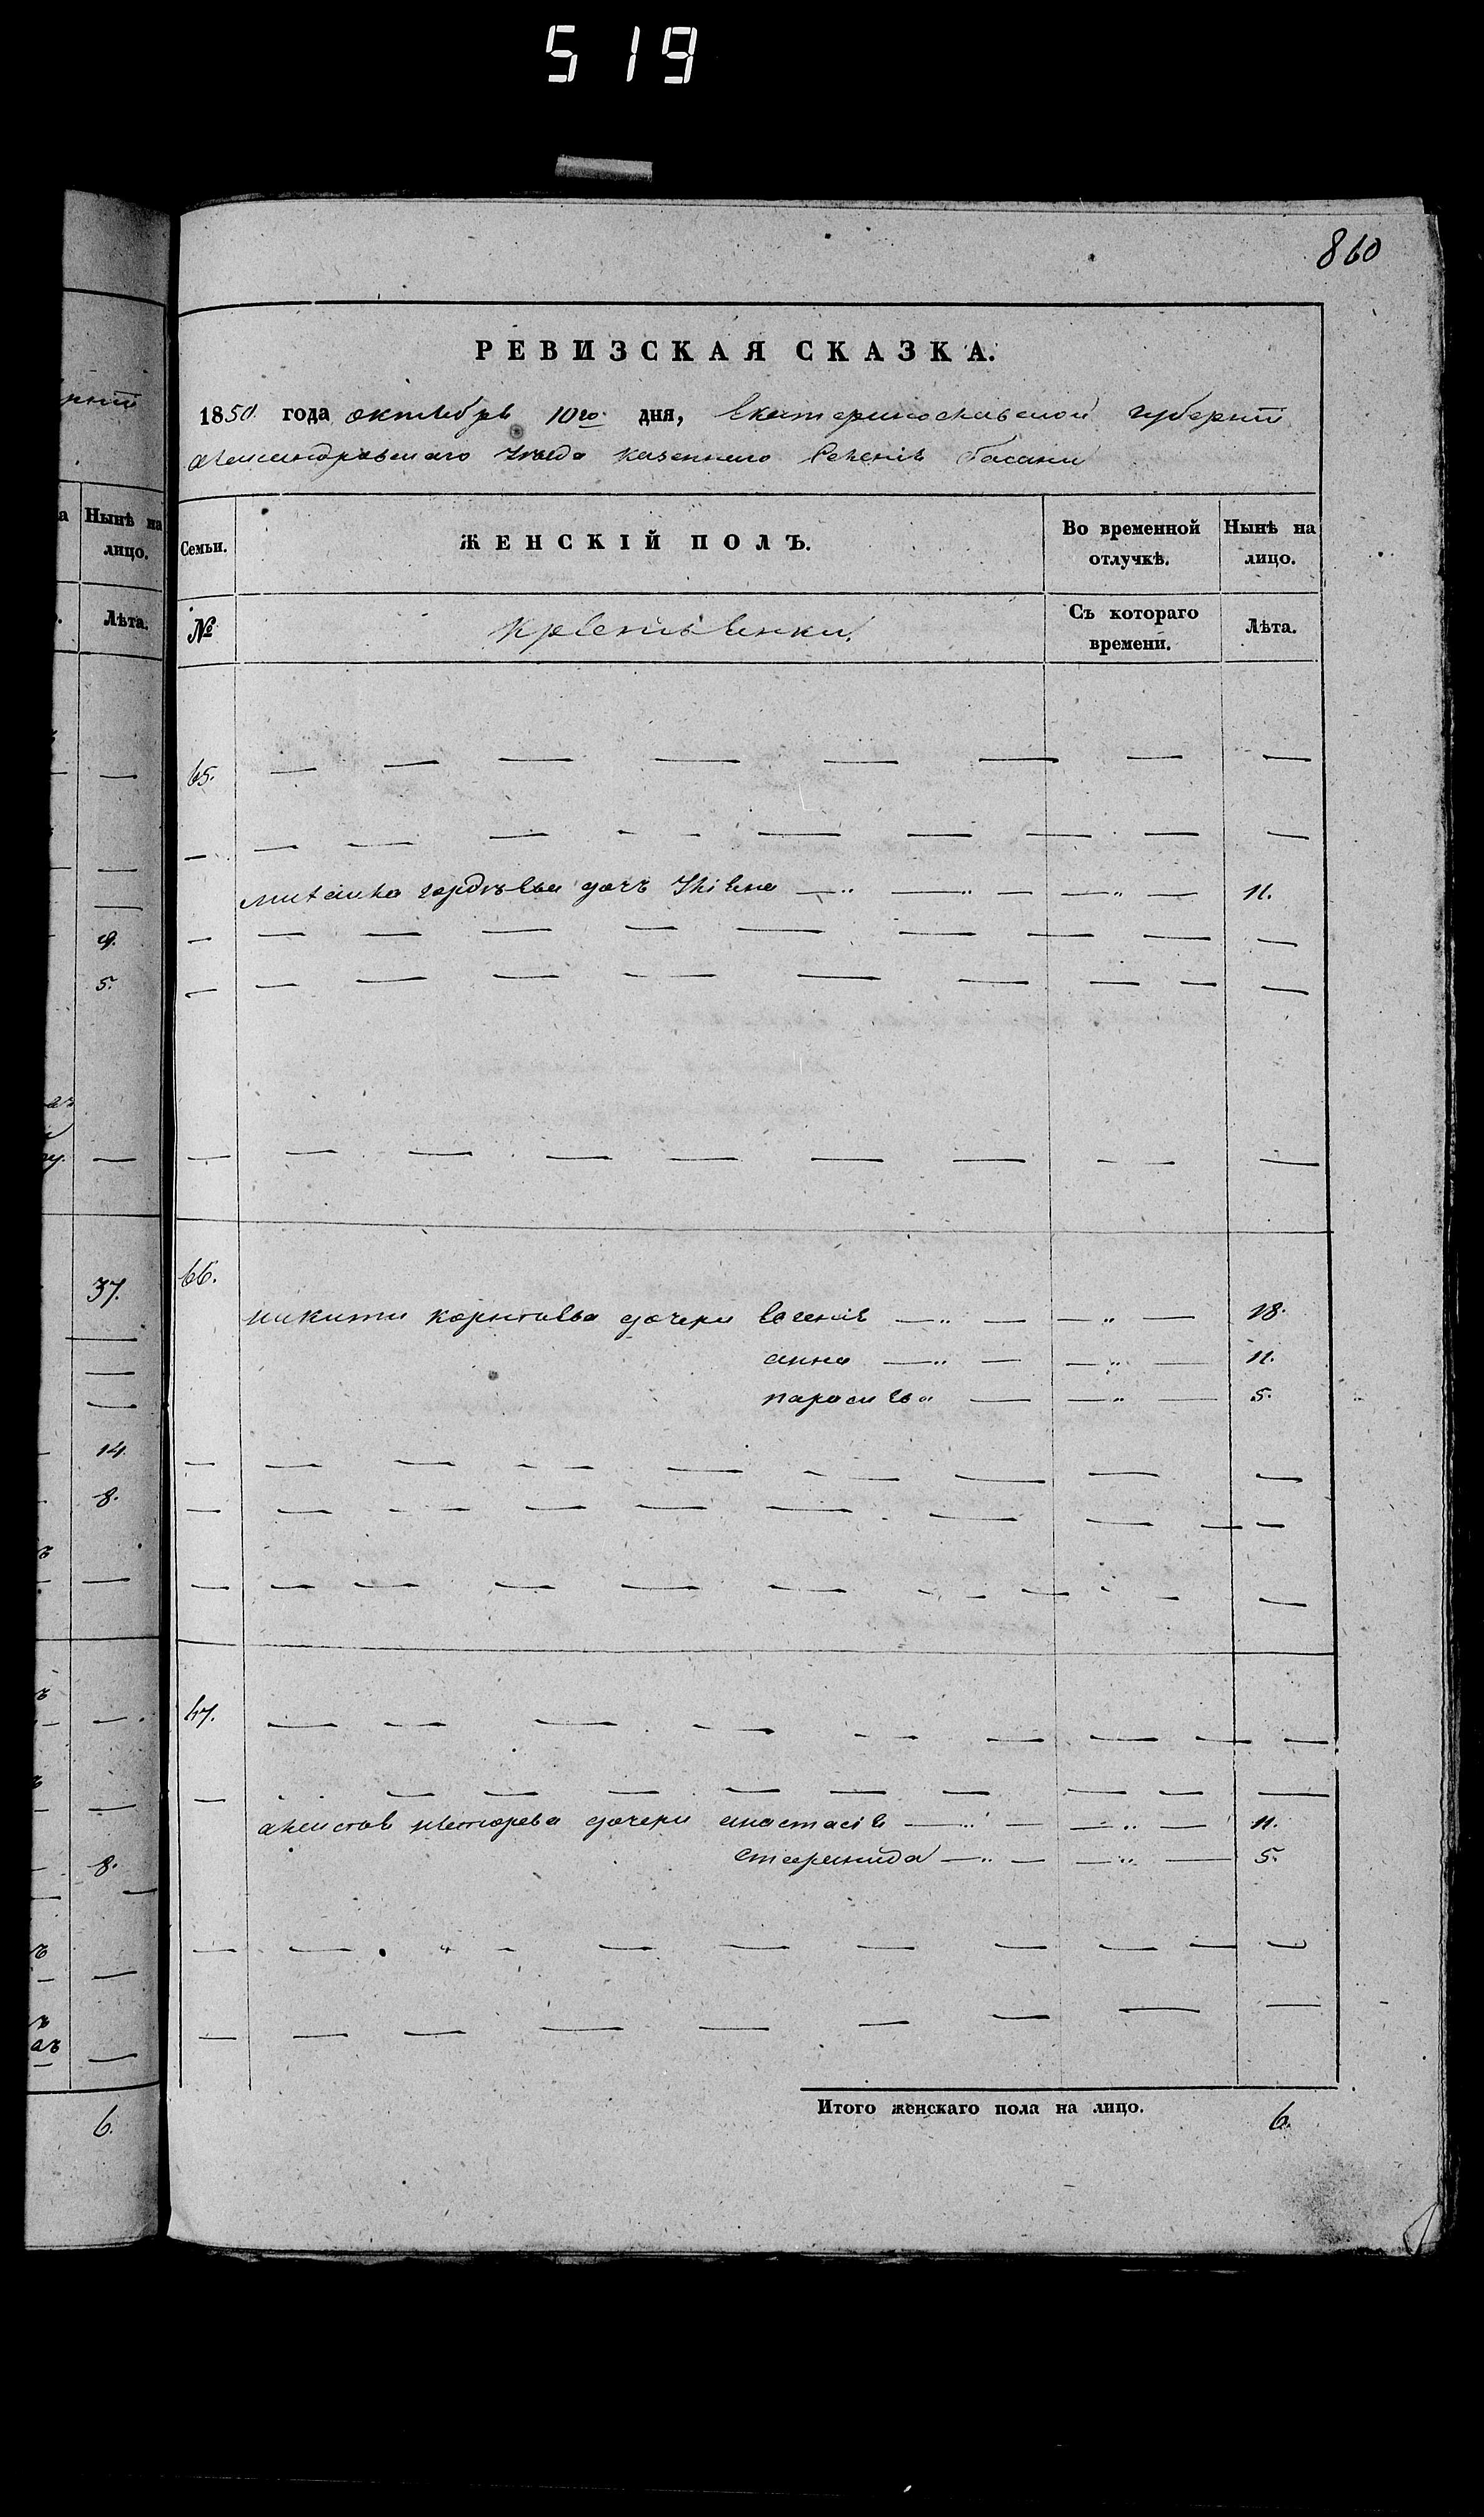 519
860
РЕВИЗСКАЯ СКАЗКА.
1850 года октября 10го дня, Екатеринославской губернiи
александровскаго уезда казеннаго селенiя басани
Семьи.
ЖЕНСКІЙ ПОЛЪ.
Во временной отлучкѣ.
Нынѣ на лицо.
№
крестьянки.
Съ котораго времени.
Лѣта.
65.
гордѣева дочь 11.
66.
никити дочери евгенiя 18.
анна 11.
парасковiя 5.
67.
дочери анастасiя 11.
степанида 5.
Итого женскаго пола на лицо. 6.
Нынѣ на
лицо.
Лѣта.
9.
5.
37.
14.
8.
8.
6.